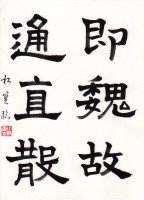 即魏故
通直散